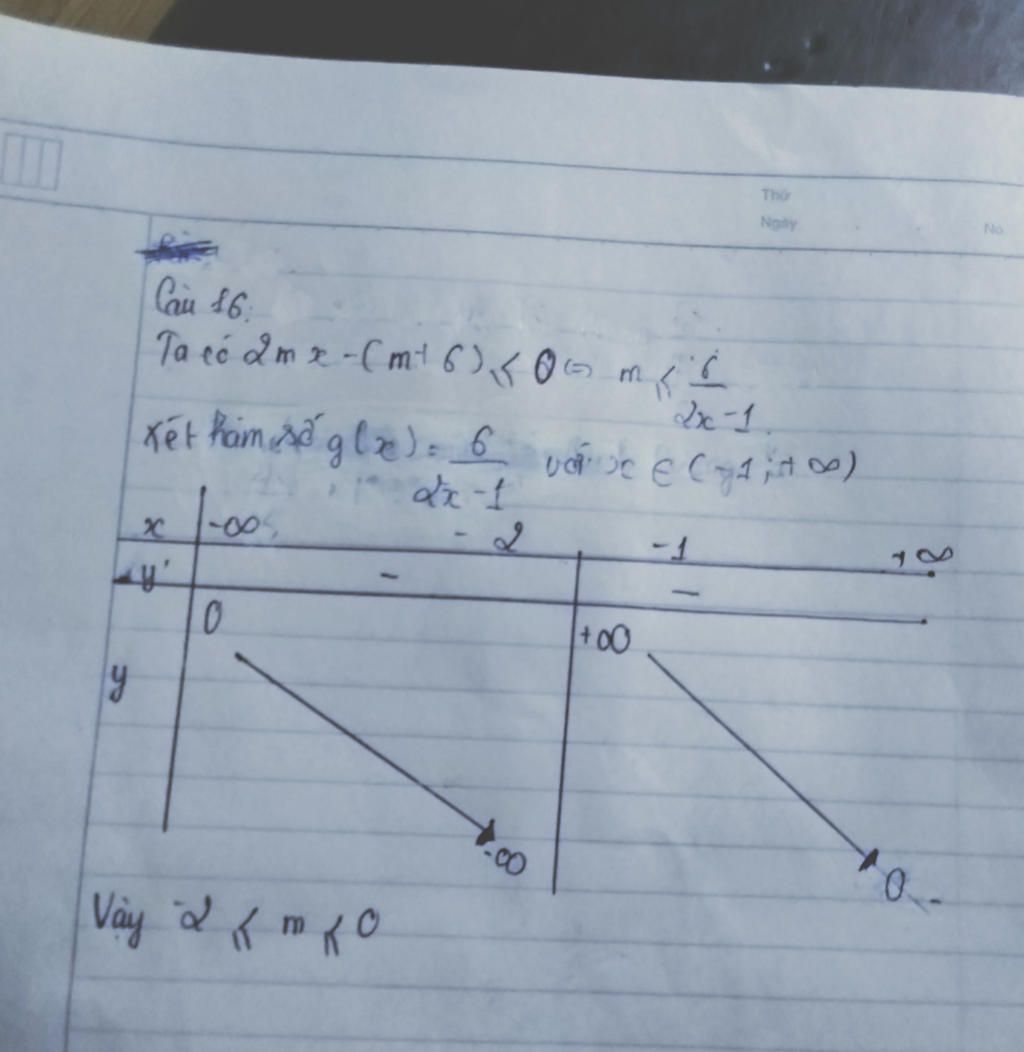 Thứ
Ngày No
Câu 16:
Ta có 2mx - (m+6) ≤ 0 <=> m ≤ 6/(2x-1)
Xét hàm số g(x) = 6/(2x-1) với x ∈ (-1; +∞)
x -∞ -2 -1 +∞
y' - -
0 +∞
y
-∞ 0
Vậy -2 ≤ m ≤ 0